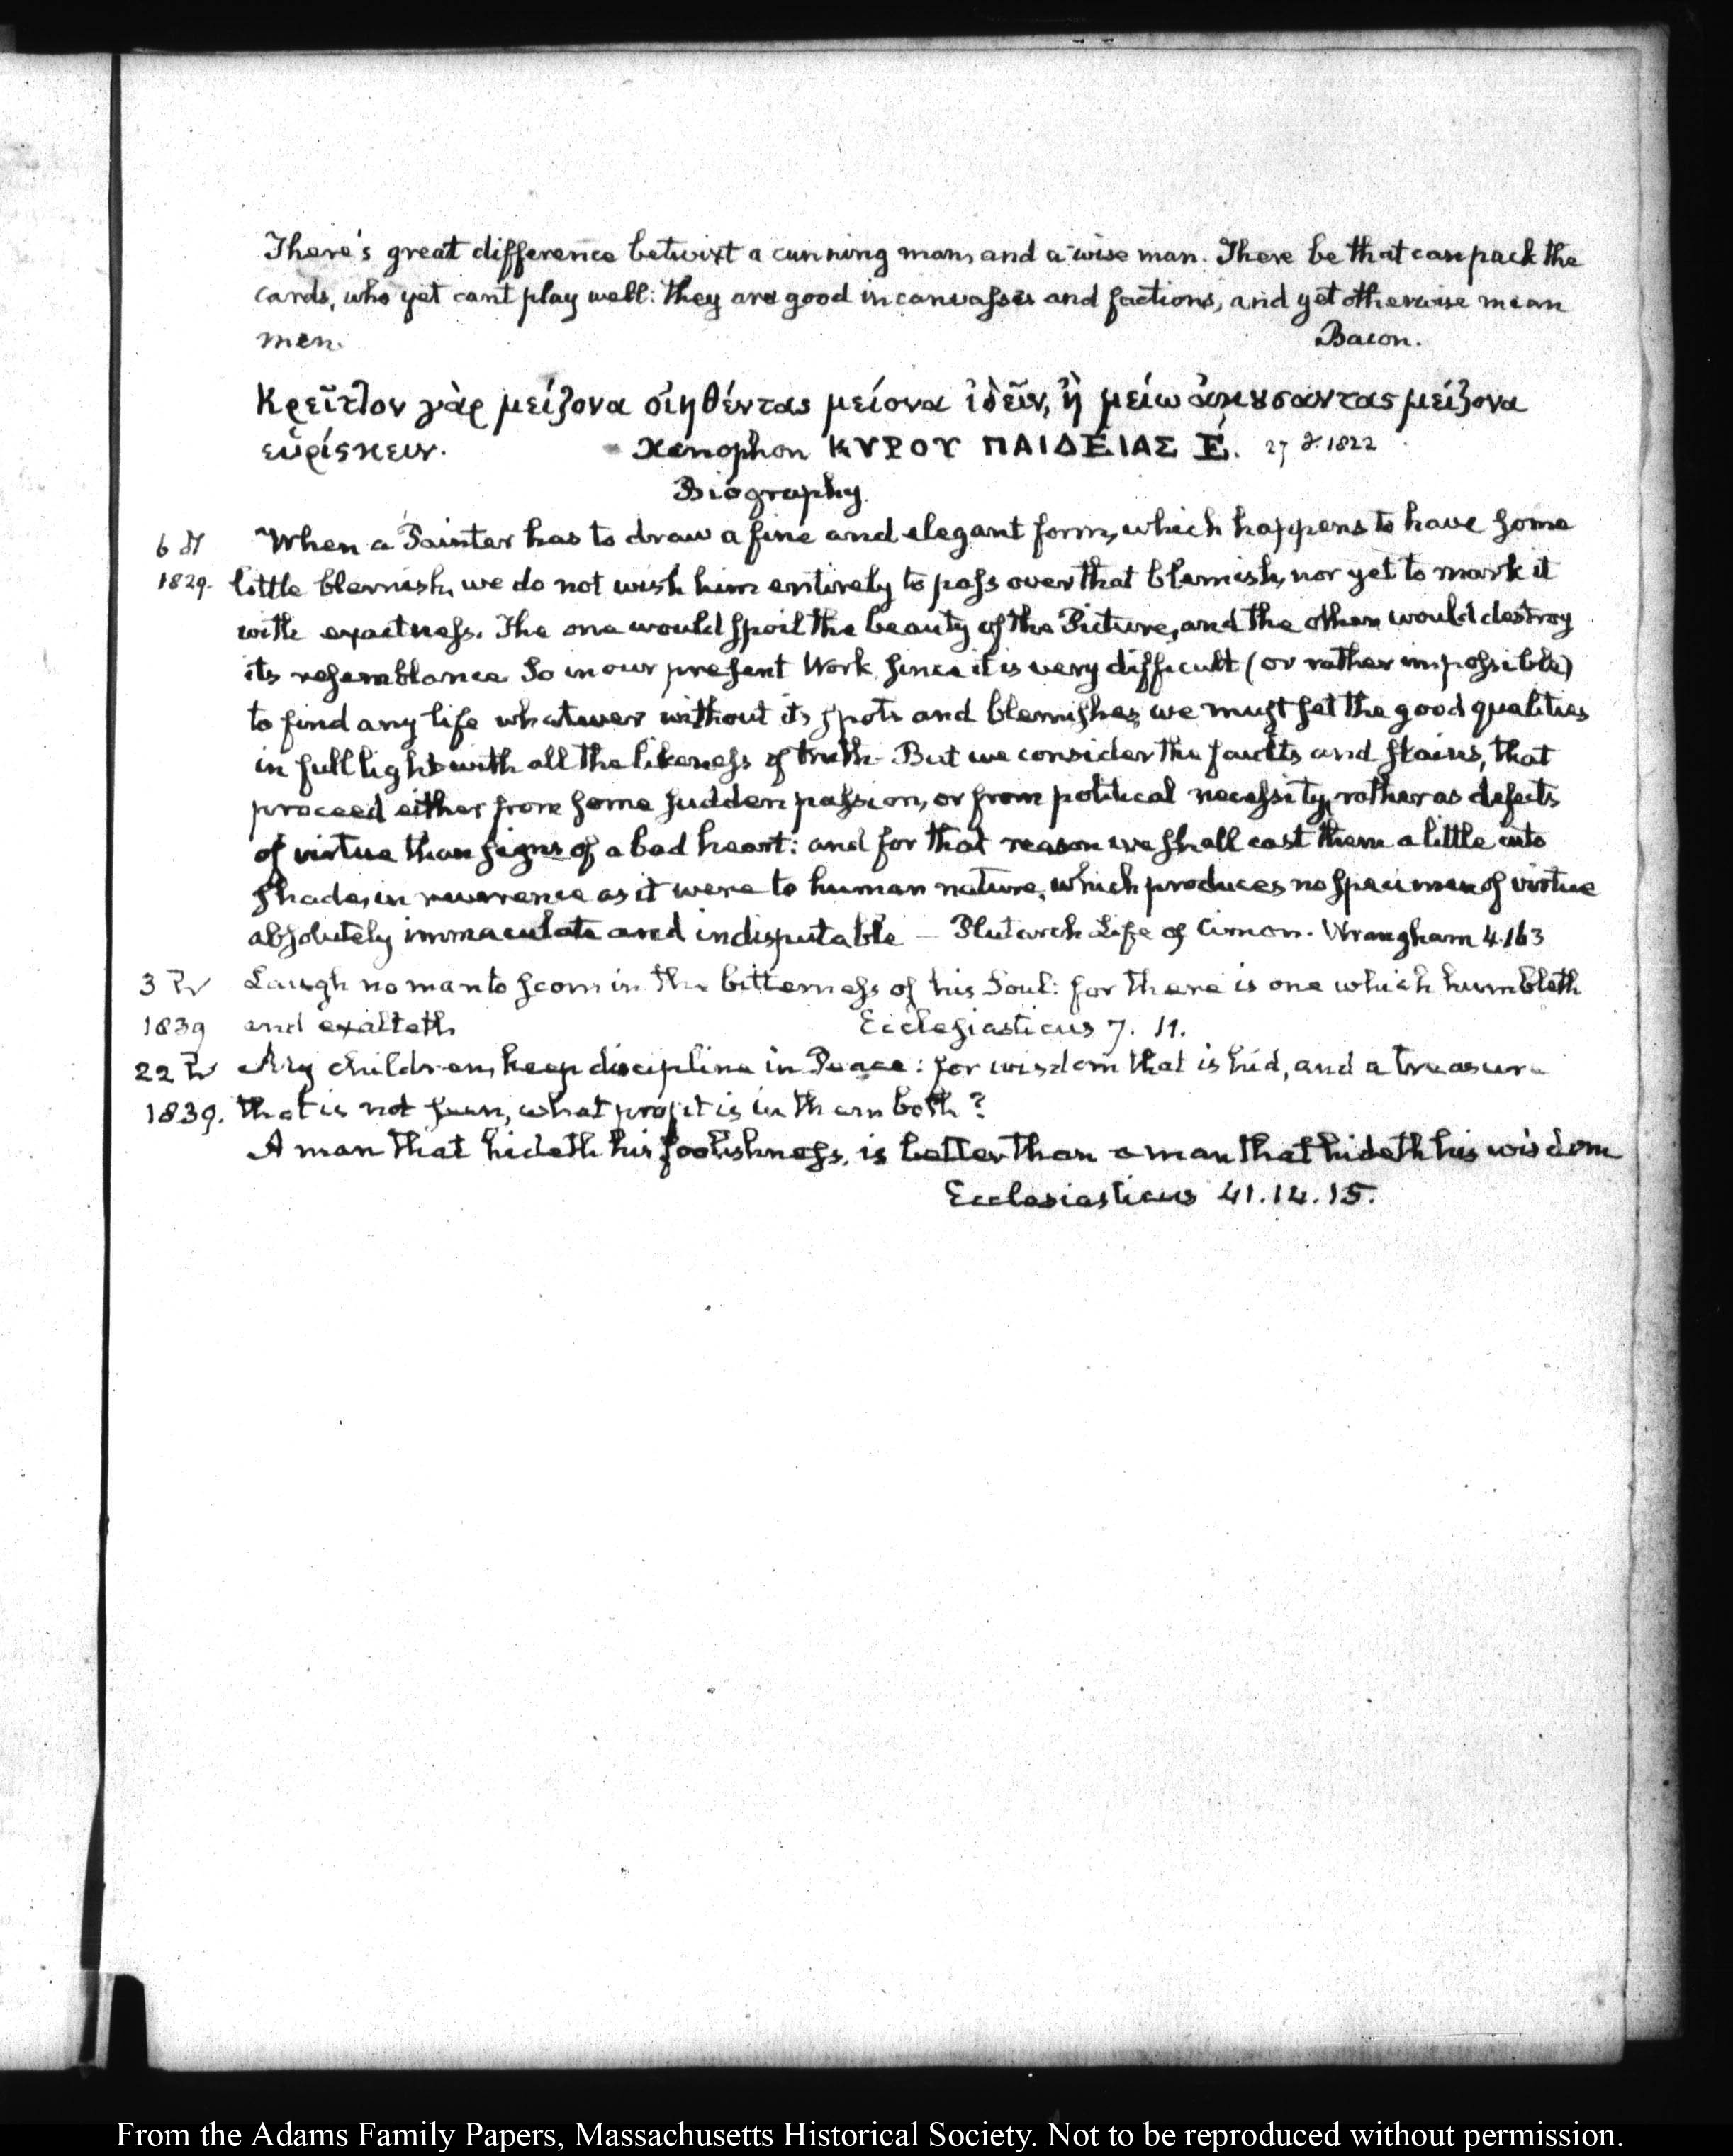 There's great difference betwixt a cunning man, and a wise man. There be that can pack the
cards, who yet cant play well: they are good in canvasses and factions, and yet otherwise mean
men. Bacon.
Κρεῖτ]ον γὰρ μείζονα οἰηθέντας μείονα ἰδεῖν, ἢ μείω ἀκȣσαντας μείζονα
εὑρίσκειν. Xenophon ΚΥΡΟΥ ΠΑΙΔΕΙΑΣ Ε. 27 1822
Biography.
6 When a Painter has to draw a fine and elegant form, which happens to have some
1829. little blemish, we do not wish him entirely to pass over that blemish, nor yet to mark it
with exactness. The one would spoil the beauty of the Picture, and the other would destroy
its resemblance. So in our present Work, since it is very difficult (or rather impossible)
to find any life whatever without its spots and blemishes, we must set the good qualities
in full light with all the likeness of truth. But we consider the faults and stains, that
proceed either from some sudden passion, or from political necessity, rather as defects
of virtue than signs of a bad heart: and for that reason we shall cast them a little into
shade, in reverence as it were to human nature, which produces no specimen of virtue
absolutely immaculate and indisputable — Plutarch Life of Cimon. Wrangham 4.163
3 Laugh no man to scorn in the bitterness of his Soul: for there is one which humbleth
1839 and exalteth. Ecclesiasticus 7. 11.
22 My children, keep discipline in Peace: for wisdom that is hid, and a treasure
1839. that is not seen, what profit is in them both?
A man that hideth his foolishness, is better than a man that hideth his wisdom
Ecclesiasticus 41.14.15.
From the Adams Family Papers, Massachusetts Historical Society. Not to be reproduced without permission.